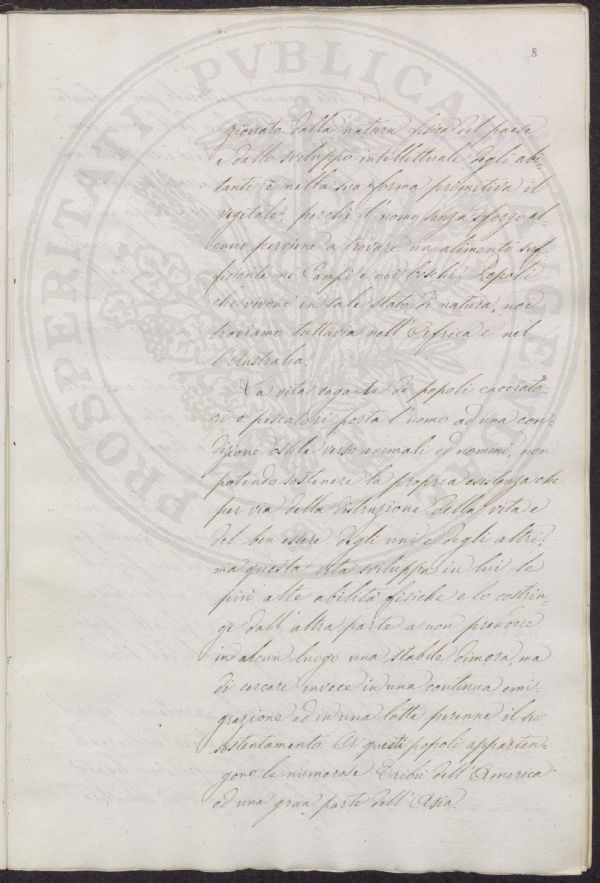 8
zionato dalla natura fisica del paese
e dallo sviluppo intellettuale degli abi-
tante è nella sua forma primitiva il
vegetale; perchè l'uomo senza sforzo al-
cuno perviene a trovare un alimento suf-
ficiente ne' Campi e nei boschi. Popoli
che vivono in tale stato di natura, noi
troviamo tuttavia nell'Affrica e nel-
l'Australia.
La vita vagante de' popoli cacciato-
ri e pescatori porta l'uomo ad una con-
dizione ostile verso animali ed uomini, non
potendo sostenere la propria esistenza che
per via della distruzione della vita e
del ben essere degli uni e degli altri;
ma questa vita sviluppa in lui le
più alte abilità fisiche e lo costrin-
ge dall'altra parte a non prendere
in alcun luogo una stabile dimora, ma
di cercare invece in una continua emi-
grazione ed in una lotta perenne il suo
sostentamento. A questi popoli apparten-
gono le numerose Tribù dell'America
ed una gran parte dell'Asia.
PROSPERITATI PVBLICAE